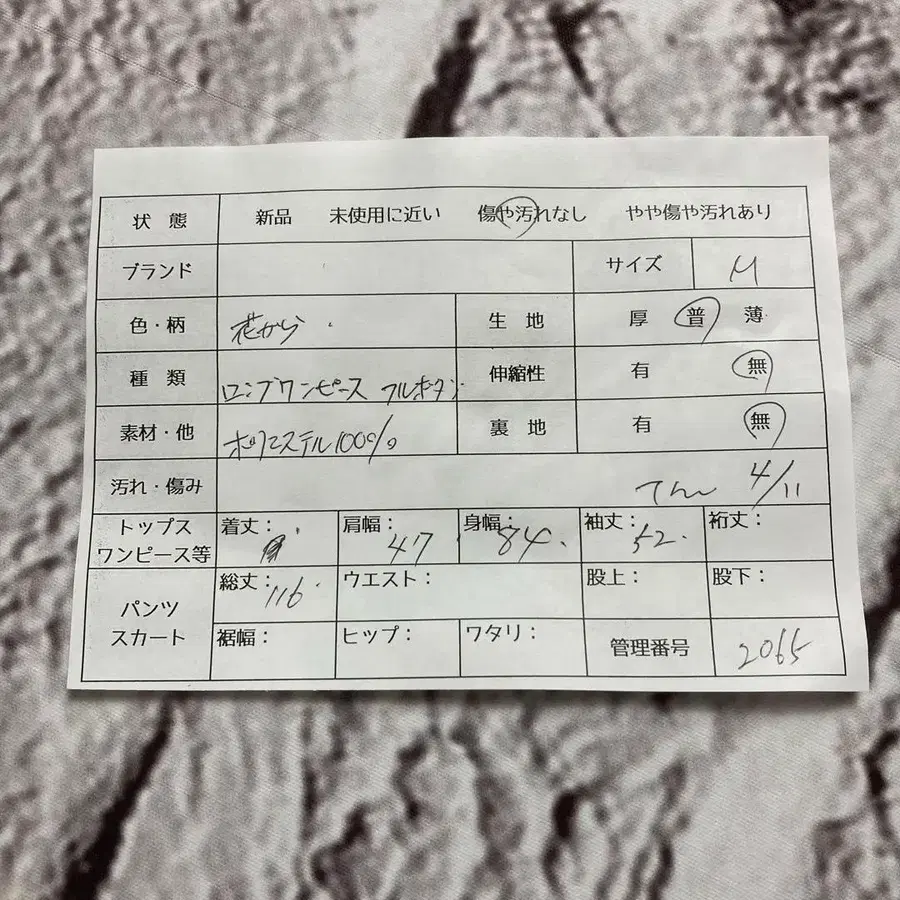 状態 新品 未使用に近い 傷や汚れなし やや傷や汚れあり
ブランド サイズ M
色・柄 花から 生地 厚 普 薄
種類 ロングワンピース フルボタン 伸縮性 有 無
素材・他 ポリエステル100% 裏地 有 無
汚れ・傷み 4/11
トップス ワンピース等 着丈: 肩幅: 47 身幅: 84. 袖丈: 52. 裄丈:
パンツ スカート 総丈: 116 ウエスト: 股上: 股下:
裾幅: ヒップ: ワタリ: 管理番号 2065